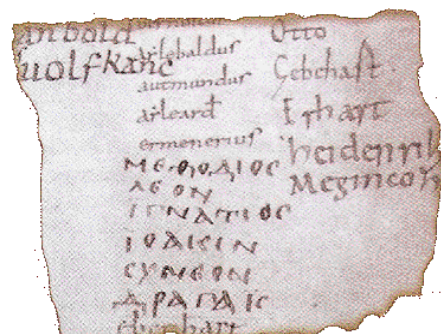 uolfkanc
arlebaldus
autmundus
arleard
ermenerius
ΜΕΘΟΔΙΟС
ΛΕΟΝ
ΙΓΝΑΤΙΟС
ΙΟΑΚΙΝ
СΥΜΕΟΝ
ΔΡΑΓΑΙС
Otto
Gebehast
Erhart
heidenrih
Megincoz